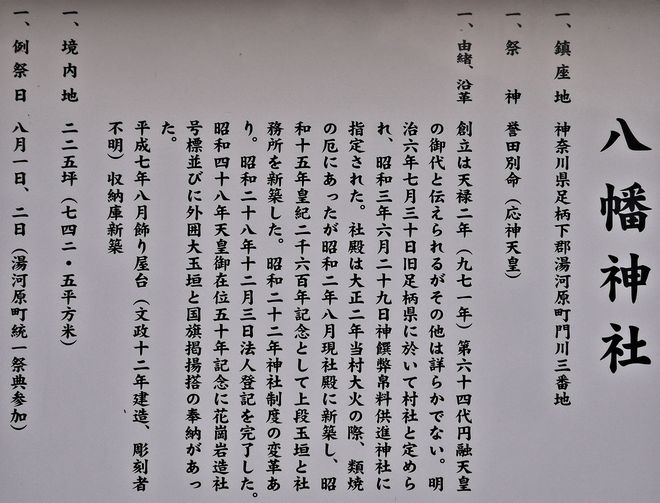 八幡神社
一、鎮座地 神奈川県足柄下郡湯河原町門川三番地
一、祭神 誉田別命（応神天皇）
一、由緒、沿革 創立は天禄二年（九七一年）第六十四代円融天皇
の御代と伝えられるがその他は詳らかでない。明
治六年七月三十日旧足柄県に於いて村社と定めら
れ、昭和三年六月二十九日神饌弊帛料供進神社に
指定された。社殿は大正二年当村大火の際、類焼
の厄にあったが昭和二年八月現社殿に新築し、昭
和十五年皇紀二千六百年記念として上段玉垣と社
務所を新築した。昭和二十二年神社制度の変革あ
り。昭和二十八年十二月三日法人登記を完了した。
昭和四十八年天皇御在位五十年記念に花崗岩造社
号標並びに外囲大玉垣と国旗掲揚搭の奉納があっ
た。
平成七年八月飾り屋台（文政十二年建造、彫刻者
不明）収納庫新築
一、境内地 二二五坪（七四二・五平方米）
一、例祭日 八月一日、二日（湯河原町統一祭典参加）